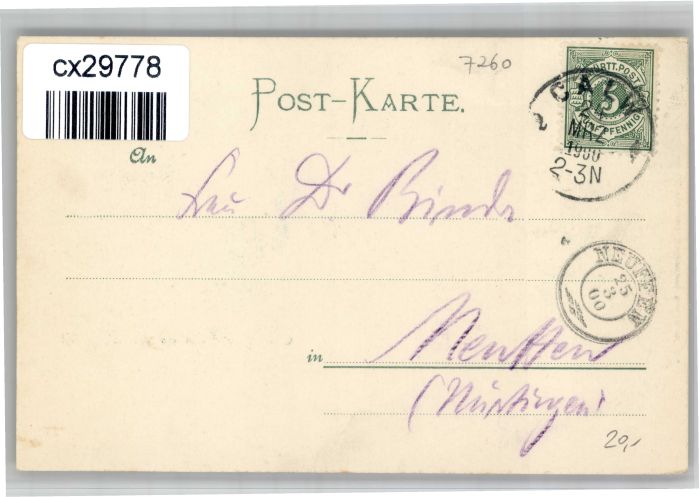 cx29778
7260
WÜRTT. POST
5
PFENNIG
CALW
MRZ
1900
2-3N
POST-KARTE.
An
Frau Dr
NEUFFEN
25
3
00
in Neuffen
(Nürtingen)
20,-